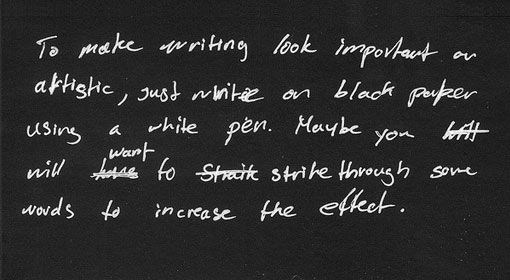 To make writing look important or
artistic, just write on black paper
using a white pen. Maybe you will
will have want to Straik strikethrough some
words to increase the effect.